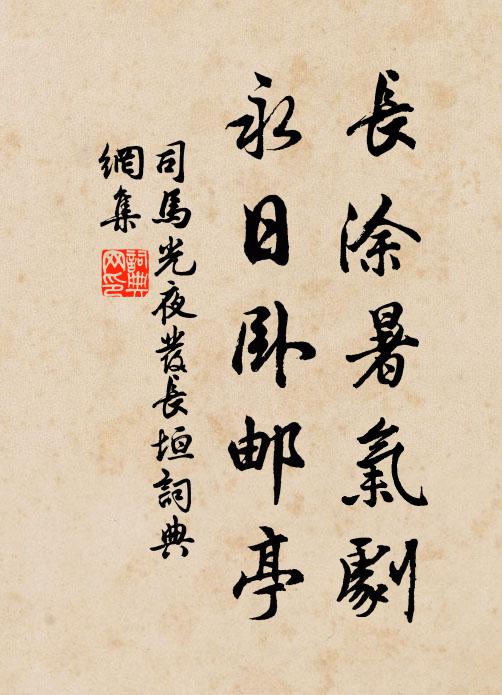 長涂暑氣劇
永日卧邮亭
司馬光夜發長垣詞典
網集
詞典网印